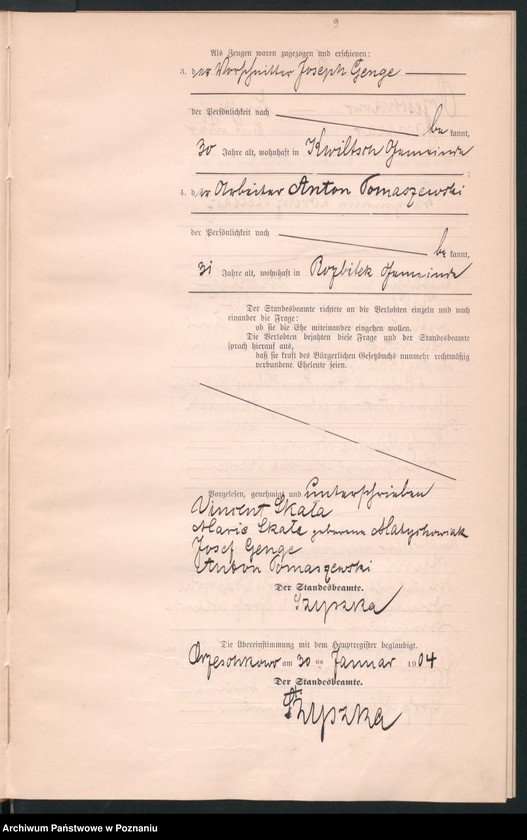 9
Als Zeugen waren zugezogen und erschienen:
3. der Vorschnitter Joseph Genge
der Persönlichkeit nach
be kannt,
30 Jahre alt, wohnhaft in Kwiltsch Gemeinde
4. der Arbeiter Anton Tomaszewski
der Persönlichkeit nach
be kannt,
31 Jahre alt, wohnhaft in Rozbitek Gemeinde
Der Standesbeamte richtete an die Verlobten einzeln und nach
einander die Frage:
ob sie die Ehe miteinander eingehen wollen.
Die Verlobten bejahten diese Frage und der Standesbeamte
sprach hierauf aus,
daß sie kraft des Bürgerlichen Gesetzbuchs nunmehr rechtmäßig
verbundene Eheleute seien.
Vorgelesen, genehmigt und unterschrieben
Vincent Skała
Marie Skała geborene Matychowiak
Josef Genge
Anton Tomaszewski
Der Standesbeamte.
Szyszka
Die Übereinstimmung mit dem Hauptregister beglaubigt.
Orzeschkowo am 30 ten Januar 1904
Der Standesbeamte.
Szyszka
Archiwum Państwowe w Poznaniu